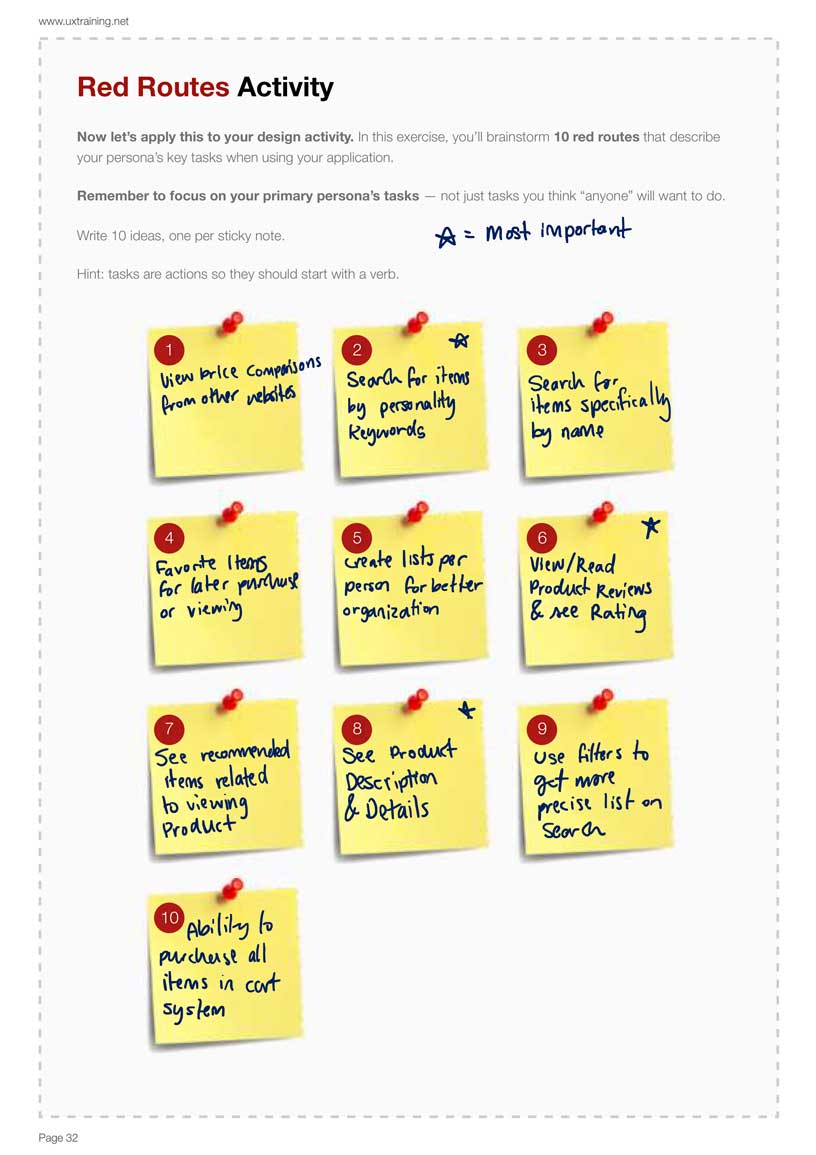 www.uxtraining.net
Red Routes Activity
Now let's apply this to your design activity. In this exercise, you'll brainstorm 10 red routes that describe
your persona's key tasks when using your application.
Remember to focus on your primary persona's tasks — not just tasks you think “anyone” will want to do.
Write 10 ideas, one per sticky note.
☆ = Most important
Hint: tasks are actions so they should start with a verb.
1
View price Comparisons
from other websites
2 ☆
Search for items
by personality
Keywords
3
Search for
items specifically
by name
4
Favorite Items
for later purchase
or viewing
5
Create lists per
person for better
organization
6 ☆
View/Read
Product Reviews
& see Rating
7
See recommended
items related
to viewing
Product
8 ☆
See Product
Description
& Details
9
Use filters to
get more
precise list on
Search
10
Ability to
purchase all
items in cart
system
Page 32